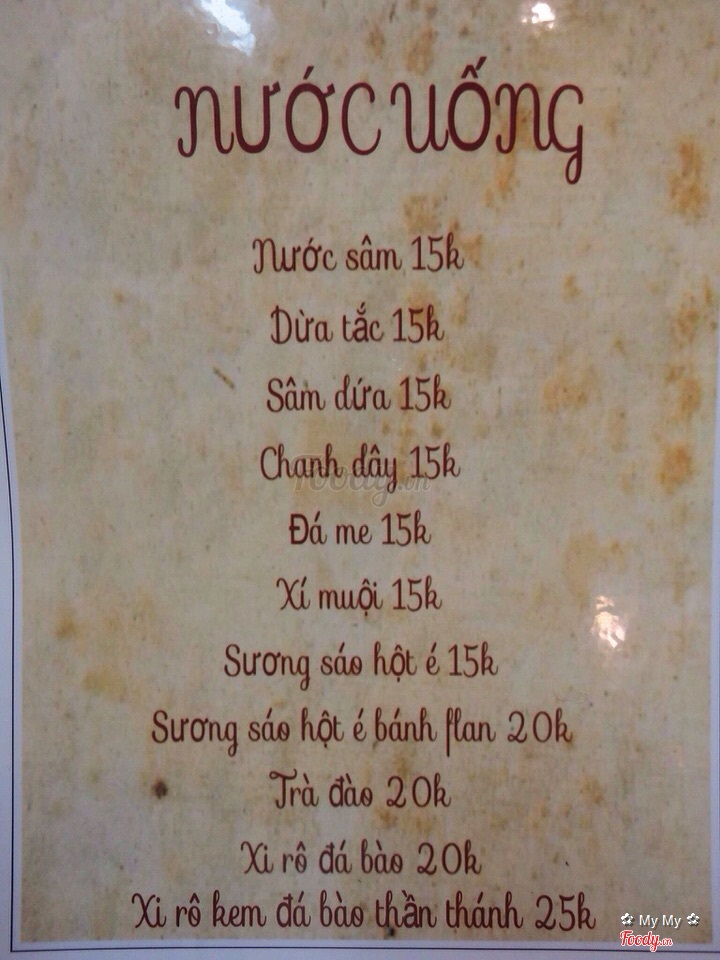 NƯỚC UỐNG
Nước sâm 15k
Dừa tắc 15k
Sâm dứa 15k
Chanh dây 15k
Foody.vn
Đá me 15k
Xí muội 15k
Sương sáo hột é 15k
Sương sáo hột é bánh flan 20k
Trà đào 20k
Xi rô đá bào 20k
Xi rô kem đá bào thần thánh 25k
✿ My My ✿
Foody.vn